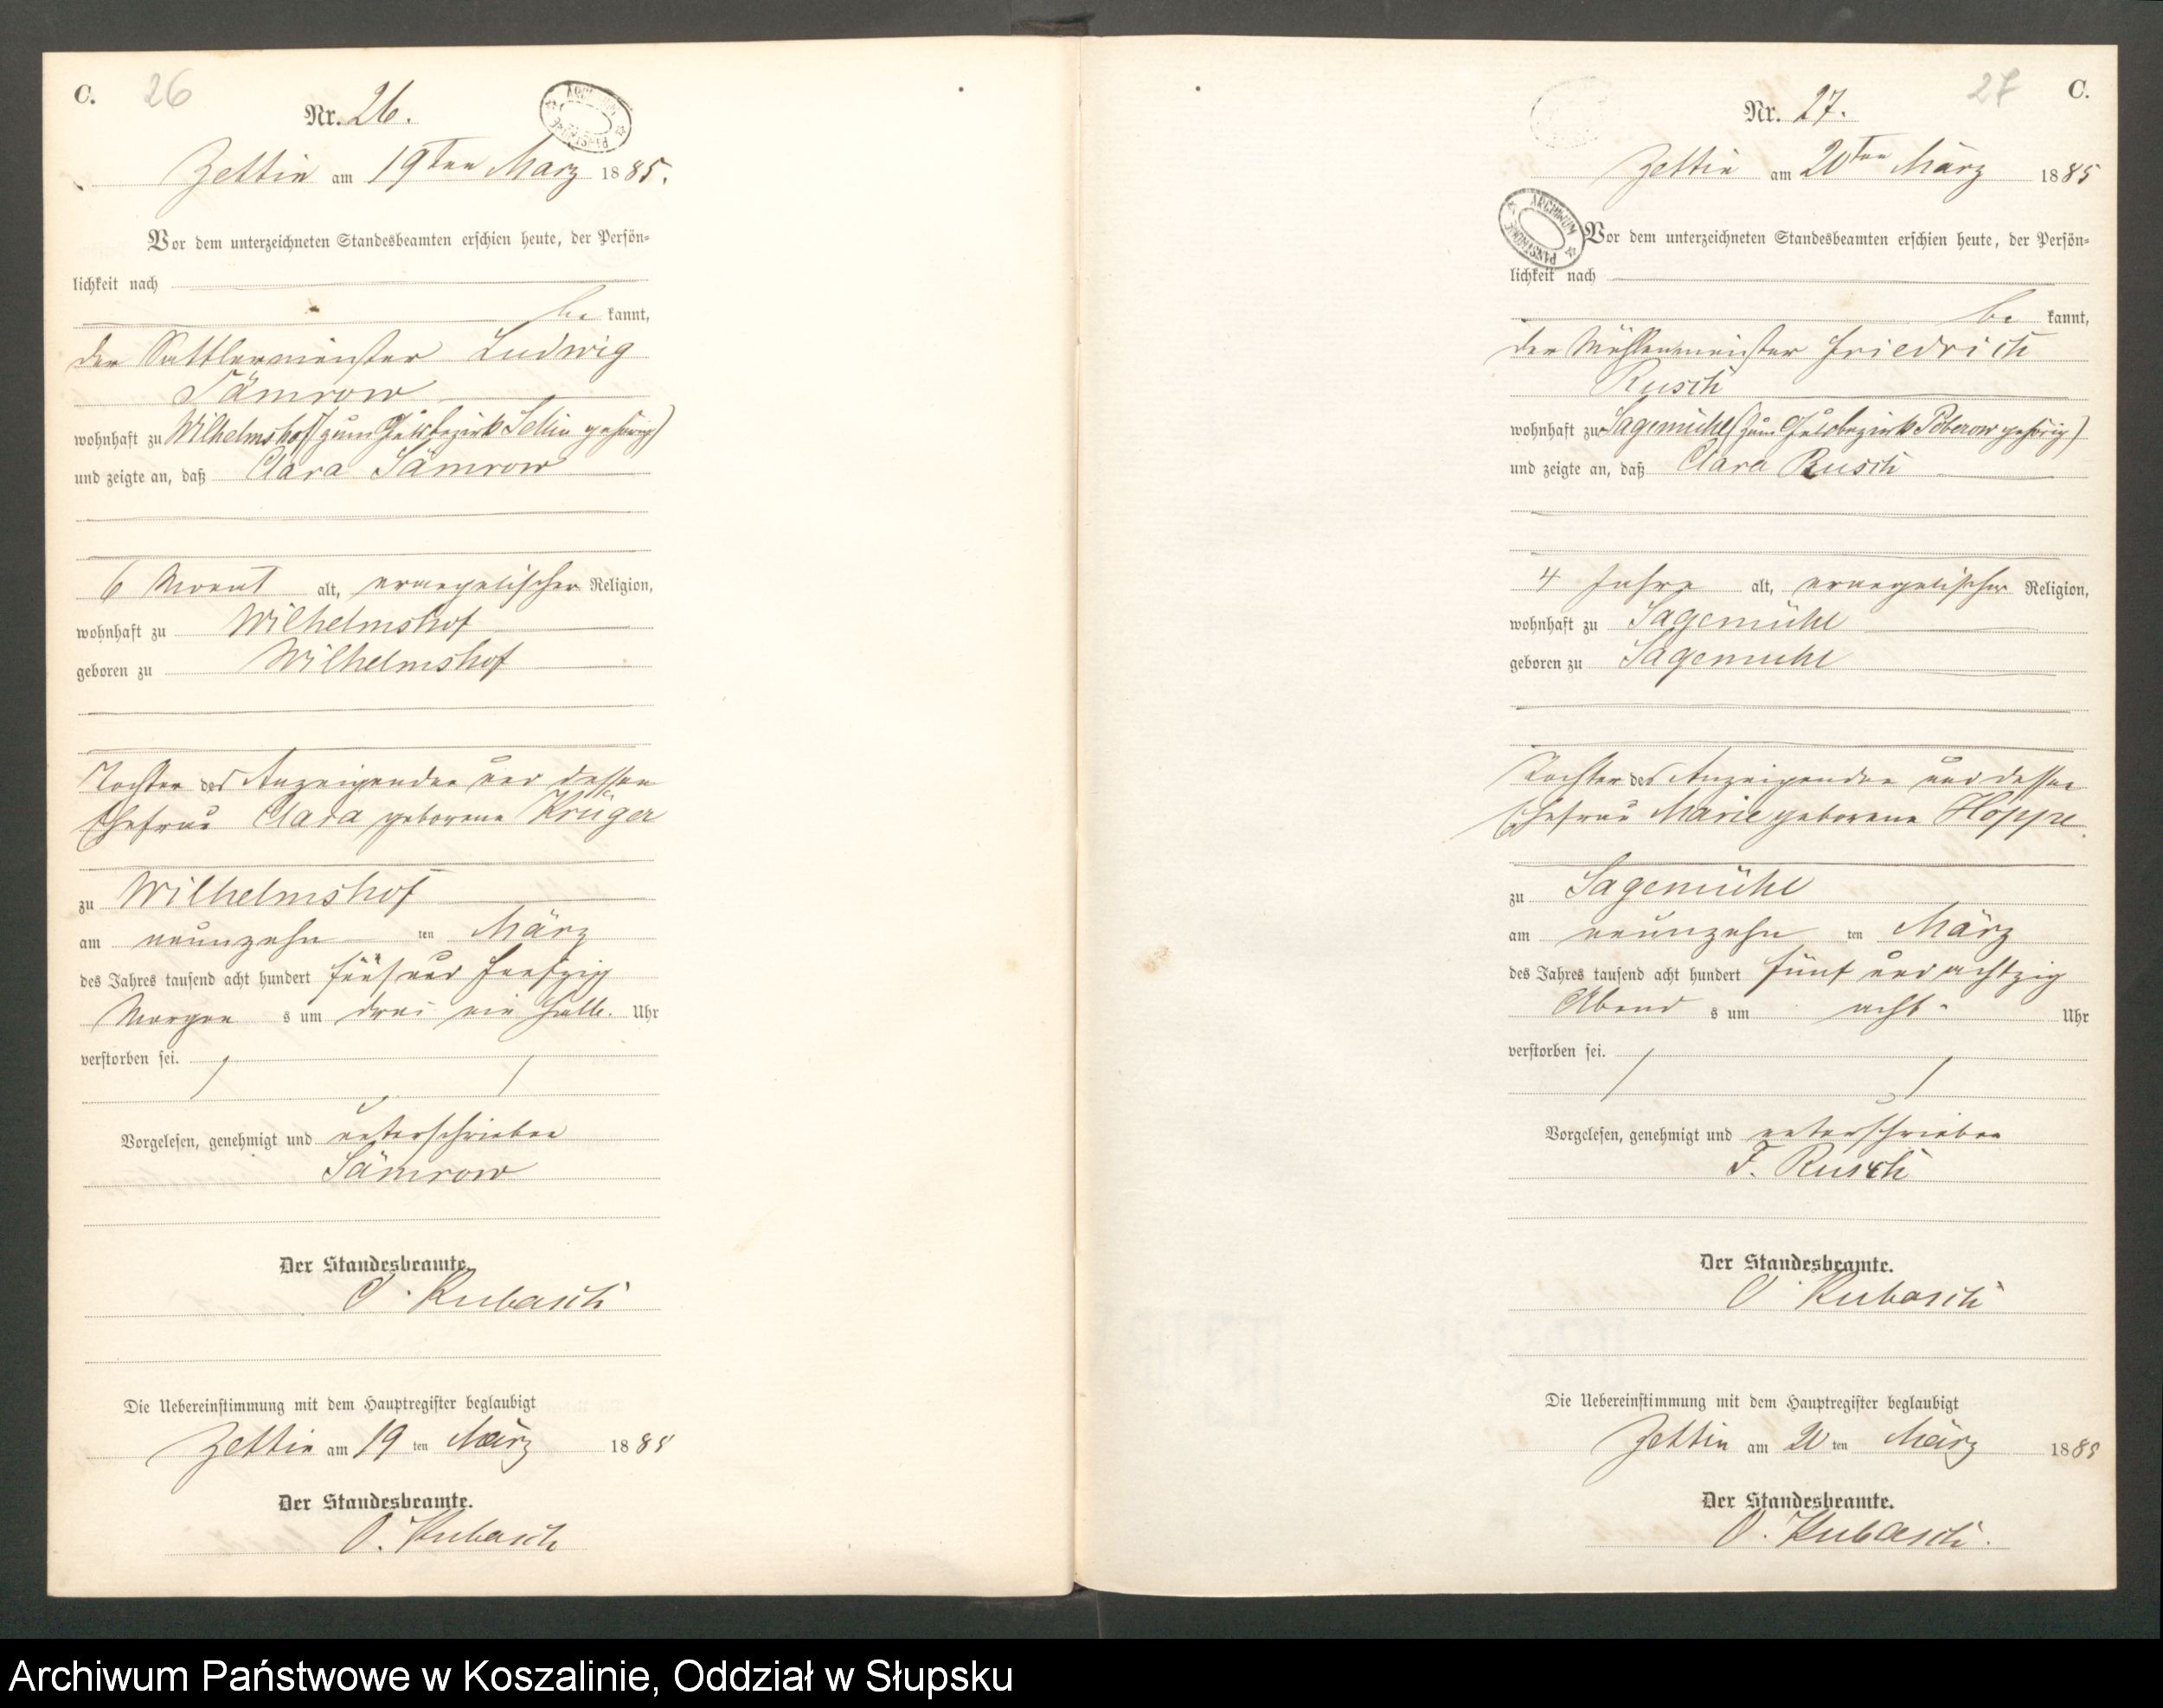 C. 26
Nr. 26.
ARCHIWUM PAŃSTWOWE
Zettin am 19ten März 1885.
Vor dem unterzeichneten Standesbeamten erschien heute, der Persön=
lichkeit nach
be kannt,
der Sattlermeister Ludwig
Sämrow
wohnhaft zu Wilhelmshof (zum Gutsbezirk Sellin gehörig)
und zeigte an, daß Clara Sämrow
6 Monat alt, evangelischer Religion,
wohnhaft zu Wilhelmshof
geboren zu Wilhelmshof
Tochter des Anzeigenden und dessen
Ehefrau Clara geborene Krüger
zu Wilhelmshof
am neunzehn ten März
des Jahres tausend acht hundert fünf und
Morgen s um drei ein halb. Uhr
verstorben sei.
Vorgelesen, genehmigt und unterschrieben
Sämrow
Der Standesbeamte.
O. Kubasch
Die Uebereinstimmung mit dem Hauptregister beglaubigt
Zettin am 19 ten März 1885
Der Standesbeamte.
O. Kubasch
27 C.
Nr. 27.
Zettin am 20ten März 1885
ARCHIWUM PAŃSTWOWE
Vor dem unterzeichneten Standesbeamten erschien heute, der Persön=
lichkeit nach
be kannt,
der Mühlenmeister Friedrich
Rusch
wohnhaft zu Sagemühl (zum Gutsbezirk Poberow gehörig)
und zeigte an, daß Clara Rusch
4 Jahre alt, evangelischer Religion,
wohnhaft zu Sagemühl
geboren zu Sagemühl
Tochter des Anzeigenden und dessen
Ehefrau Marie geborene Hoppe.
zu Sagemühl
am neunzehn ten März
des Jahres tausend acht hundert fünf und achtzig
Abend s um acht Uhr
verstorben sei.
Vorgelesen, genehmigt und unterschrieben
F. Rusch
Der Standesbeamte.
O. Kubasch
Die Uebereinstimmung mit dem Hauptregister beglaubigt
Zettin am 20 ten März 1885
Der Standesbeamte.
O. Kubasch.
Archiwum Państwowe w Koszalinie, Oddział w Słupsku